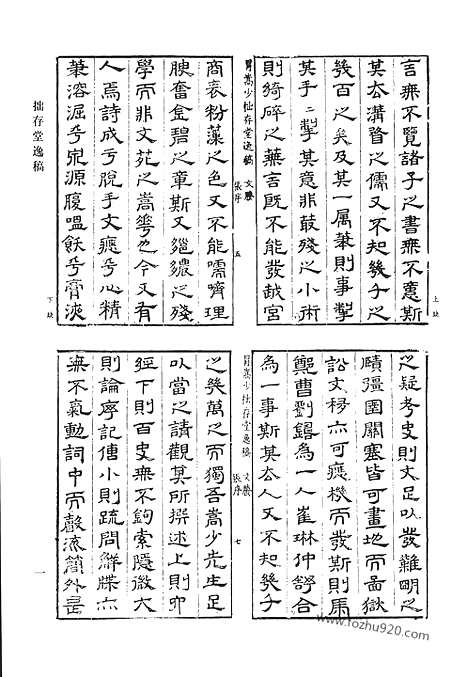 言無不覽諸子之書無不意斯
其太溝瞀之儒又不知幾千之
幾百之矣及其一属藁則事掣
其手二掣其意非蕞殘之小術
則綺碎之藥言既不能發越宮
冒嵩少拙存堂逸稿 文勝 張序 五
商衮粉藻之色又不能嚅嚌理
腴奮金碧之章斯又繼鑣之殘
學而非文苑之嵩華也今又有
人焉詩成乎脫手文癒乎心精
筆溶滛乎泉源腹嗢飫乎膏液
上缺
下缺
拙存堂逸稿
之疑考史則文足以發難明之
賾彊圉關塞皆可畫地而啚獄
訟文移亦可應機而發斯則馬
鄭曹劉錯為一人崔琳仲舒合
為一事斯其太人又不知幾千
冒嵩少拙存堂逸稿 文勝 張序 七
之幾萬之而獨吾嵩少先生足
以當之請觀其所撰述上則丱
經下則百史無不鉤索隱微大
則論序記傳小則疏問解牒亦
無不氣動詞中而聲流簡外昌
一
www.fozhu920.com